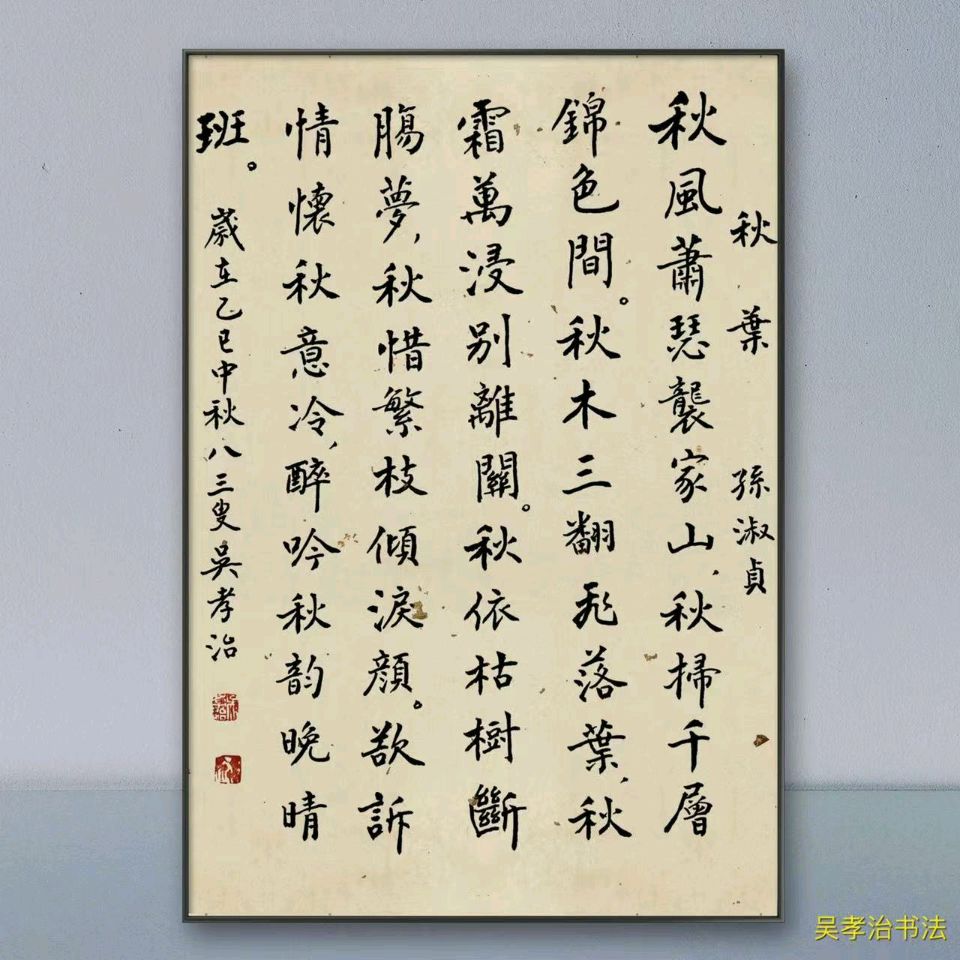 秋葉 孫淑貞
秋風蕭瑟襲家山,秋掃千層
錦色間。秋木三翻飛落葉,秋
霜萬浸别離關。秋依枯樹斷
腸夢,秋惜繁枝傾淚顔。欲訴
情懷秋意冷,醉吟秋韵晚晴
班。
歲在乙巳中秋八三叟吳孝治
吴孝治书法